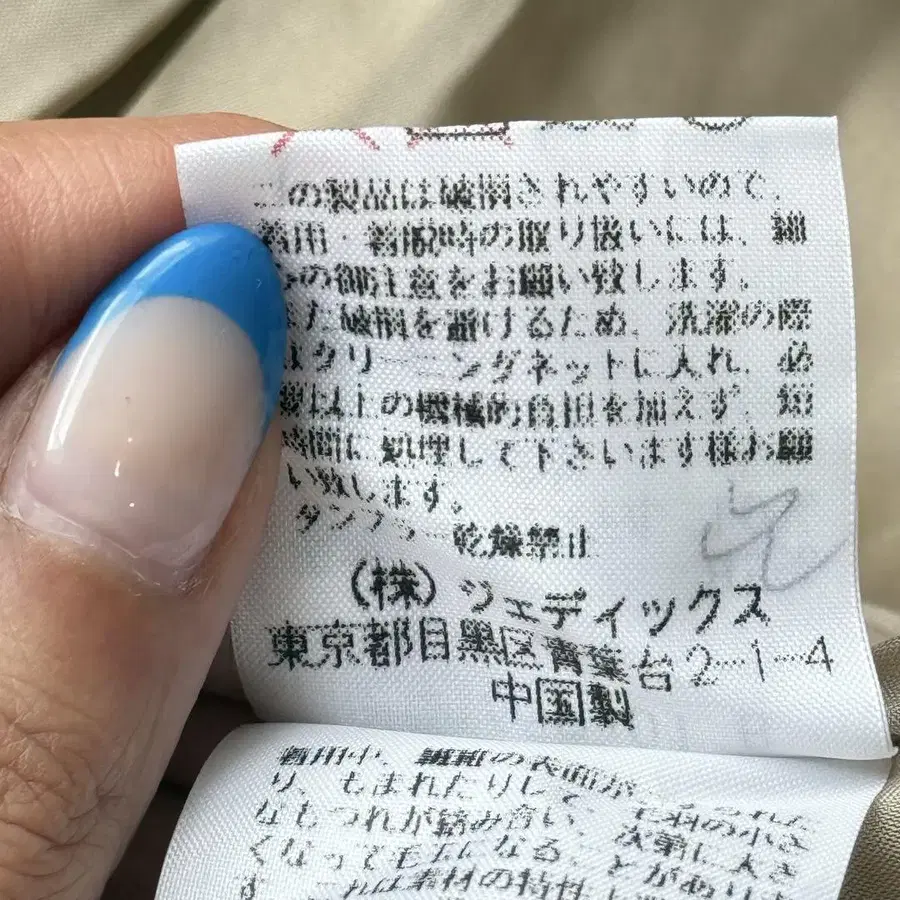 この製品は破損されやすいので、
着用・着脱時の取り扱いには、細
の御注意をお願い致します。
また破損を避けるため、洗濯の際
はクリーニングネットに入れ、必
要以上の機械的負担を加えず、短
時間に処理して下さいます様お願
い致します。
タンブラー乾燥禁止
(株)ジェディックス
東京都目黒区青葉台2-1-4
中国製
着用中、繊維の表面が
り、もまれたりして、毛羽の小さ
なもつれが絡み合い、次第に大き
くなって毛玉になる とがありま
す これは素材の特性